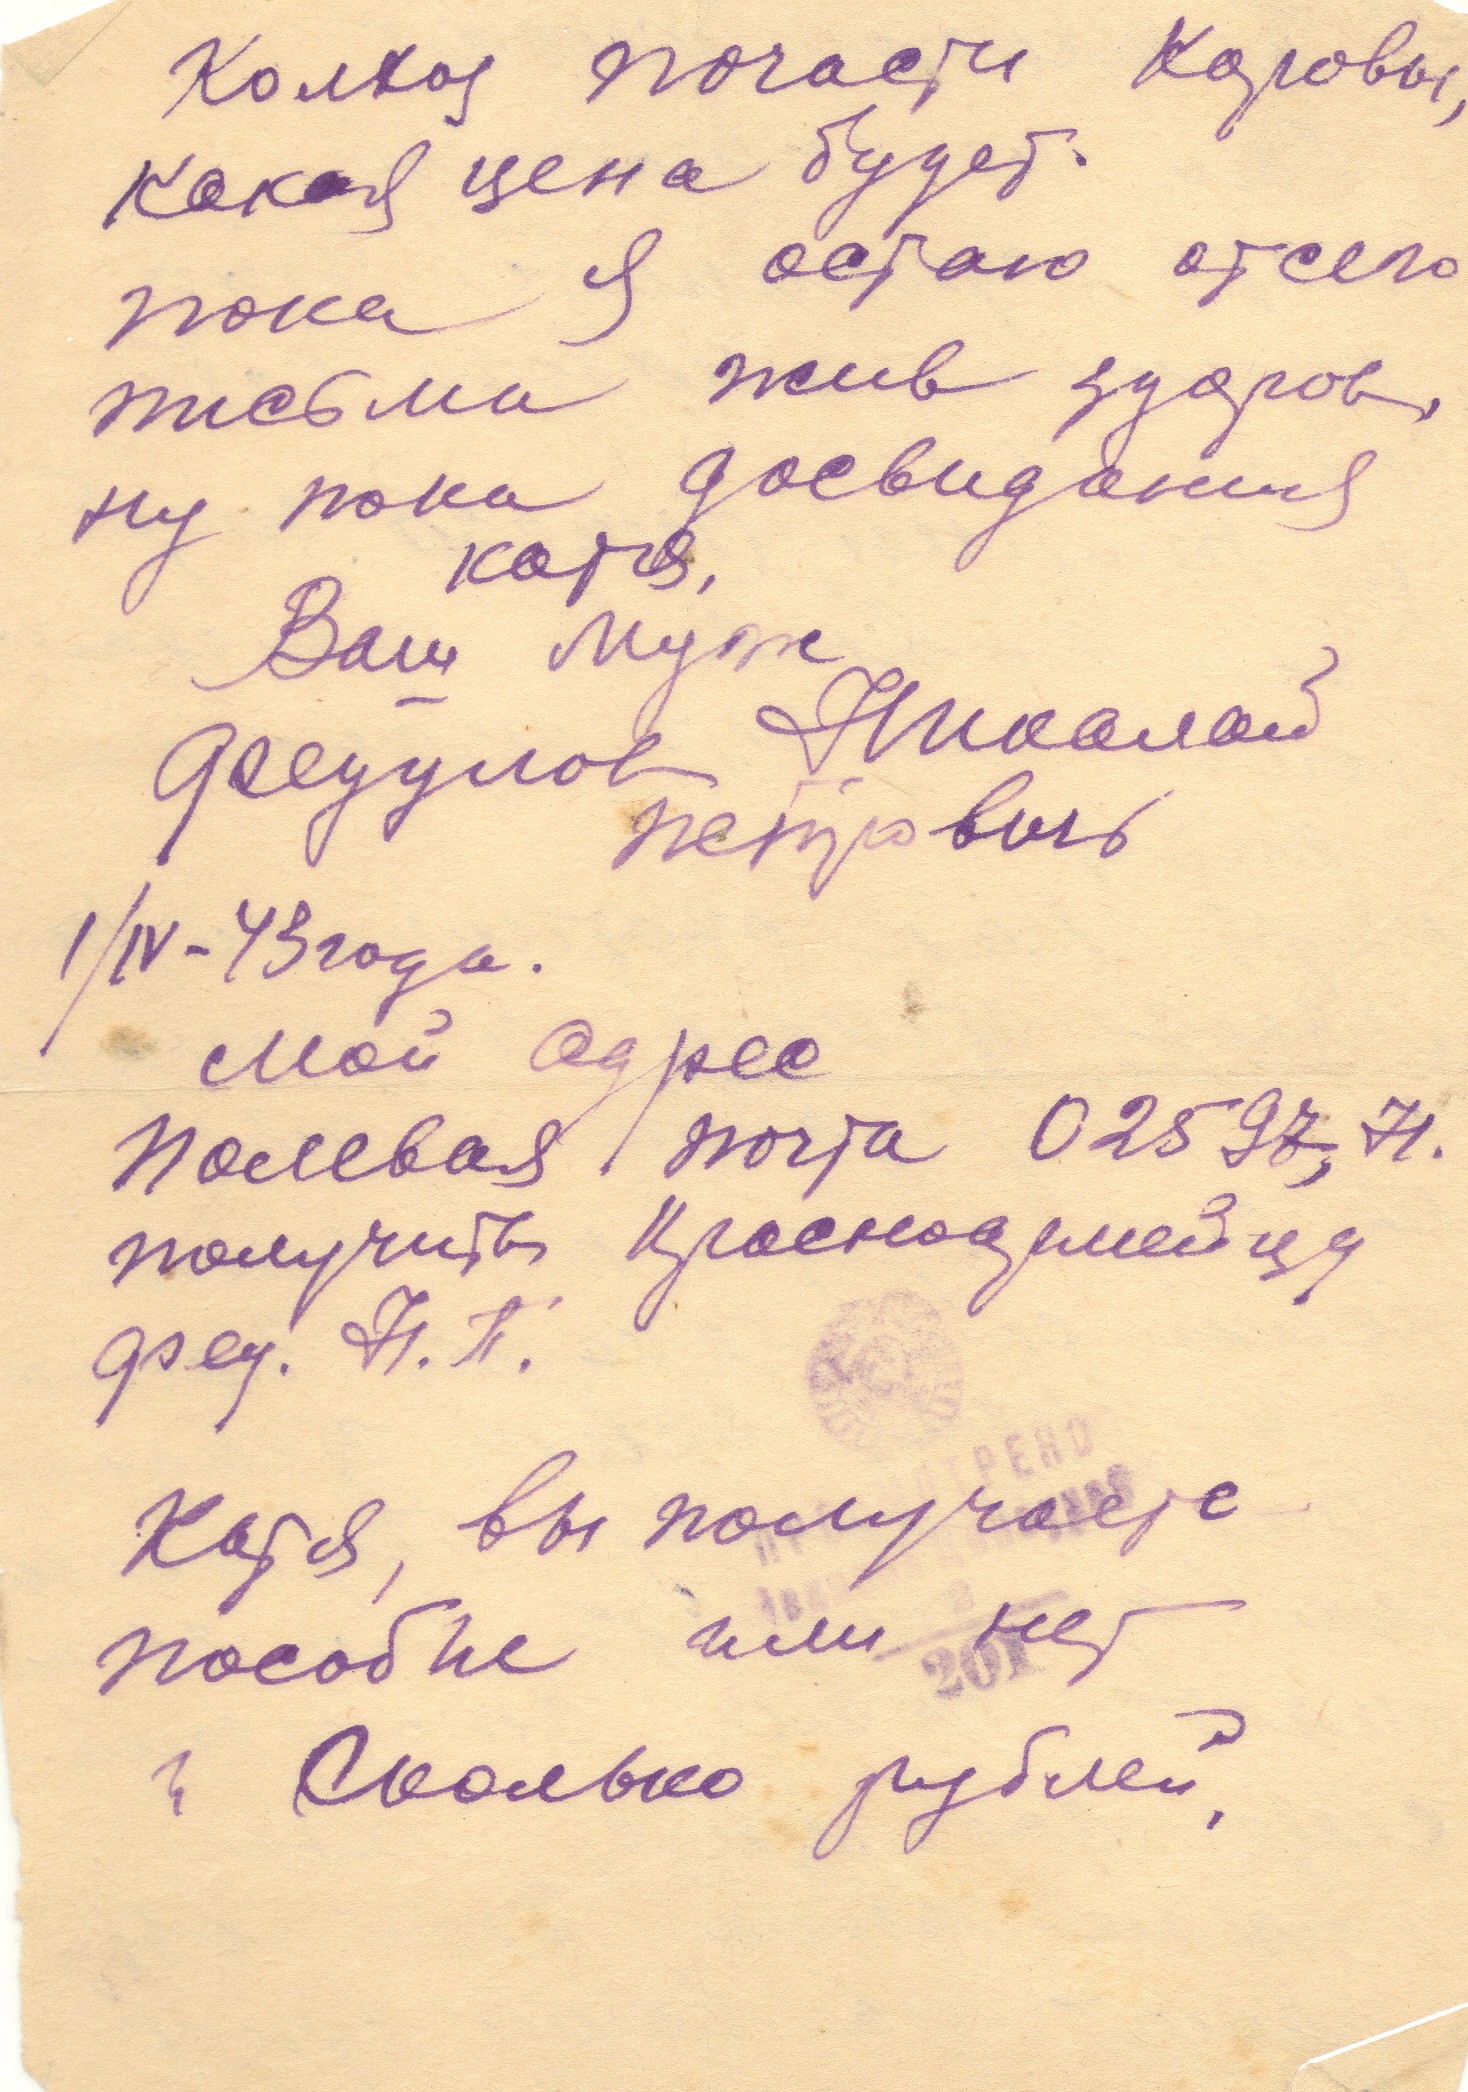 Колхоз почасти Каровы,
какая цена будет.
пока Я остаю отсело
письма жив здаров,
ну пока досвидания
катя,
Ваш муж
Федулов Николай
Петровичь
1/IV-43 года.
Мой адрес
Полевая почта 02597, Н.
получить Красноармейца
Фед. Н. П.
Катя, вы получаете
пособие или нет
и Сколько рублей,
201